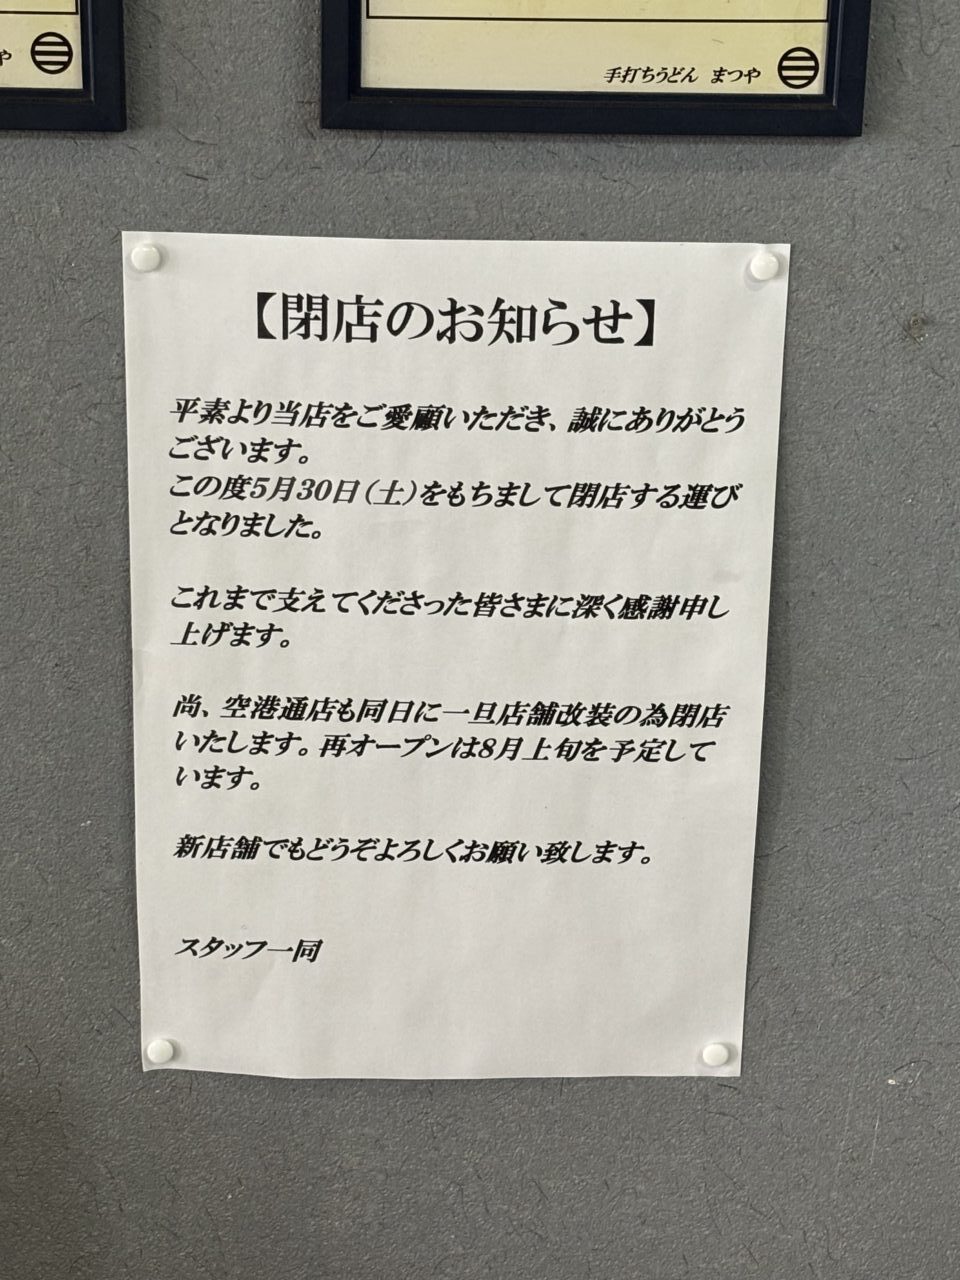 や
手打ちうどん まつや
【閉店のお知らせ】
平素より当店をご愛顧いただき、誠にありがとう
ございます。
この度5月30日(土)をもちまして閉店する運び
となりました。
これまで支えてくださった皆さまに深く感謝申し
上げます。
尚、空港通店も同日に一旦店舗改装の為閉店
いたします。再オープンは8月上旬を予定して
います。
新店舗でもどうぞよろしくお願い致します。
スタッフ一同